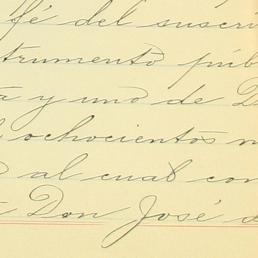 fé del suscri
trumento púb
a y uno de D
ochocientos n
al cual con
Don José d